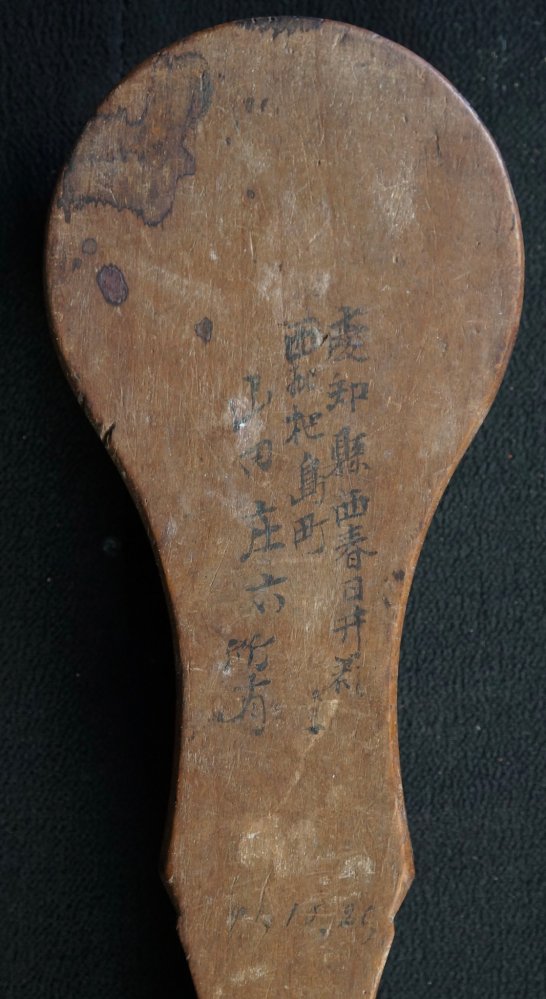 愛知縣西春日井郡
西枇杷島町
山田庄六所有